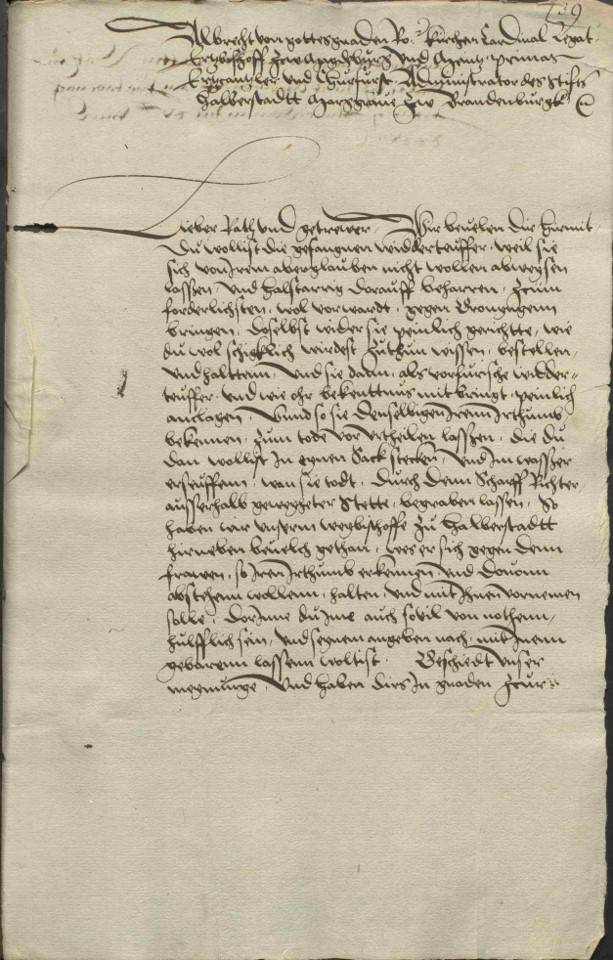 139
Albrecht von gottes gnaden Ro. kirchen Cardinal Legat
Ertzbischoff zw Magdeburg und Mentz primas
Ertzcantzler und Churfurst Administrator des Stiffts
Halberstadtt Marggraue zw Brandenburgk
Lieber Rath und getrewer Wir beuelen dir hirmit
Du wollist die gefangnen widderteuffer, weil sie
sich von Irem aberglauben nicht wollen abweysen
lassen und halstarrig dorauff beharren, zcum
forderlichsten wol vorwardt, gegen Gronyngenn
bringen, doselbst wider sie peinlich gerichtte, wie
du wol schigklich wirdest zuthun wissen, bestellen
und halttenn, und sie dann als vorfurische widder-
teuffer, und wie ohr bekenttnus mit bringt, peinlich
anclagen, Unnd so sie denselbigen Irenn Irthumb
bekennen, zum tode vor urtheilen lasszen, die du
dan wollist In eynen Sack stecken, und Im wasszer
erseuffenn, wan sie todt, durch denn Scharff Richter
ausserhalb geweyheter Stette, begraben lassen, So
haben wir unserm weybischoffe zu Halberstadtt
hirneben beuelich gethan, wes er sich gegen denn
frawen, so Iren Irthumb erkennen und dovonn
abstehenn wollenn, halten, und mit Ihnen vornemen
solle, dorinne du Ime auch sovil von nothenn,
hulfflich sein, und seynen angeben nach, mit Inenn
gebarenn lassenn woltist. Geschiedt unser
meynunge, und haben dirs In gnaden